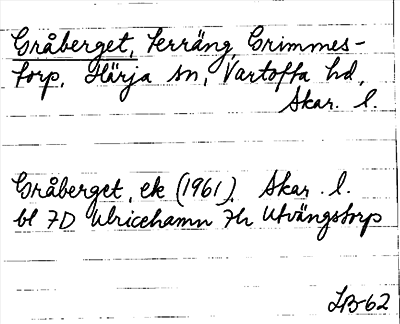 Gråberget, terräng, Grimmes-
torp, Härja sn, Vartofta hd,
Skar. l.
Gråberget, ek (1961). Skar. l.
bl 7D Ulricehamn 7h Utvängstorp
LB-62